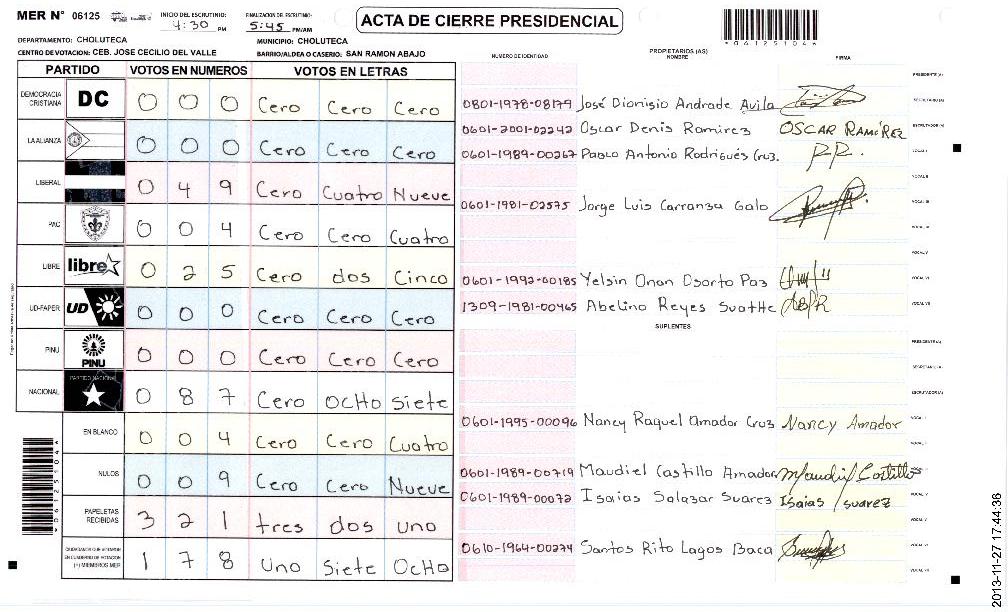 MER N° 06125
INICIO DEL ESCRUTINIO: 4:30 PM
FINALIZACION DEL ESCRUTINIO: 5:45 PM/AM
ACTA DE CIERRE PRESIDENCIAL
*061251046
DEPARTAMENTO: CHOLUTECA
MUNICIPIO: CHOLUTECA
CENTRO DE VOTACION: CEB. JOSE CECILIO DEL VALLE
BARRIO/ALDEA O CASERIO: SAN RAMON ABAJO
PARTIDO VOTOS EN NUMEROS VOTOS EN LETRAS
DEMOCRACIA CRISTIANA DC 0 0 0 Cero Cero Cero
LA ALIANZA 0 0 0 Cero Cero Cero
LIBERAL 0 4 9 Cero Cuatro Nueve
PAC 0 0 4 Cero Cero Cuatro
LIBRE libre 0 2 5 Cero dos Cinco
UD-FAPER UD 0 0 0 Cero Cero Cero
PINU PINU 0 0 0 Cero Cero Cero
NACIONAL PARTIDO NACIONAL 0 8 7 Cero OCHO Siete
EN BLANCO 0 0 4 Cero Cero Cuatro
NULOS 0 0 9 Cero Cero Nueve
PAPELETAS RECIBIDAS 3 2 1 tres dos uno
CIUDADANOS QUE VOTARON EN CUADERNO DE VOTACION (+) MIEMBROS MER 1 7 8 Uno Siete OCHO
NUMERO DE IDENTIDAD PROPIETARIOS (AS) NOMBRE FIRMA
PRESIDENTE (A)
0801-1978-08179 José Dionisio Andrade Avila SECRETARIO (A)
0601-2001-02242 Oscar Denis Ramirez OSCAR RAMÍREZ ESCRUTADOR (A)
0601-1989-00267 Pablo Antonio Rodrigués Cruz. R.R. VOCAL I
VOCAL II
0601-1981-02575 Jorge Luis Carranza Galo VOCAL III
VOCAL V
0601-1992-00185 Yelsin Onan Osorto Paz VOCAL VI
1309-1981-00465 Abelino Reyes VOCAL VII
SUPLENTES
PRESIDENTE (A)
SECRETARIO (A)
ESCRUTADOR (A)
0601-1995-00096 Nancy Raquel Amador Cruz Nancy Amador VOCAL I
0601-1989-00719 Maudiel Castillo Amador Maudiel Castillo
0601-1989-00072 Isaias Salazar Suarez Isaias Suarez
0610-1964-00274 Santos Rito Lagos Baca
VOCAL VII
2013-11-27 17:44:36